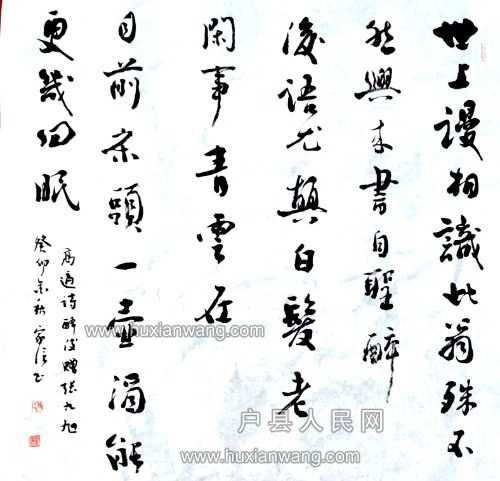 世上謾相識此翁殊不
然興来書自聖醉
後語尤顛白髮老
閑事青雲在
目前床頭一壶酒能
更幾回眠
高適诗醉後赠张九旭
癸卯秋家书
www.huxianwang.com
户县人民网
www.huxianwang.com